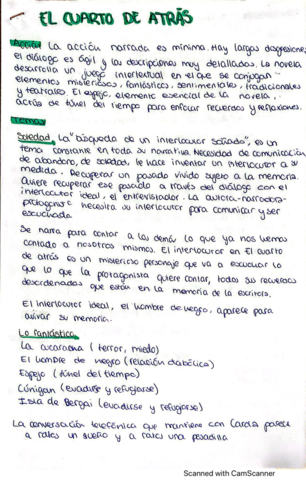 EL CUARTO DE ATRÁS
Acción La acción narrada es mínima. Hay largas disgresiones,
el diálogo es ágil y las descripciones muy detalladas. La novela
desarrolla un juego intertextual en el que se conjugan
elementos misteriosos, fantásticos, sentimentales, tradicionales
y teatrales. El espejo, elemento esencial de la novela,
actúa de túnel del tiempo para enfocar recuerdos y reflexiones.
Temas
Soledad, La "búsqueda de un interlocutor soñado", es un
tema constante en toda su narrativa. Necesidad de comunicación
de abandono, de soledad, le hace inventar un interlocutor a su
medida. Recuperar un pasado vivido sujeto a la memoria.
Quiere recuperar ese pasado a través del diálogo con el
interlocutor ideal, el entrevistador. La autora-narradora-
protagonista necesita su interlocutor para comunicar y ser
escuchada.
Se narra para contar a los demás lo que ya nos hemos
contado a nosotros mismos. El interlocutor en El cuarto
de atrás es un misterioso personaje que va a escuchar lo
que lo que la protagonista quiere contar, todos sus recuerdos
desordenados que están en la memoria de la escritora.
El interlocutor ideal, el hombre de negro, aparece para
avivar su memoria.
Lo fantástico
La cucaracha (terror, miedo)
El hombre de negro (relación diabólica)
Espejo (túnel del tiempo)
Cúnigan (evadirse y refugiarse)
Isla de Bergai (evadirse y refugiarse)
La conversación telefónica que mantiene con Carola parece
a ratos un sueño y a ratos una pesadilla
Scanned with CamScanner